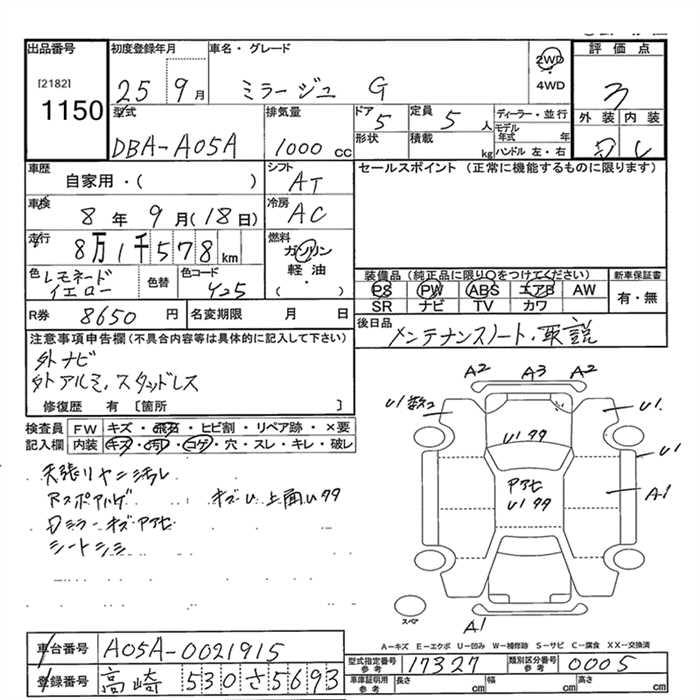 出品番号
[2182]
1150
初度登録年月
25 9月
車名・グレード
ミラージュ G
2WD
4WD
評価点
3
外装 内装
D
型式
DBA-A05A
排気量
1000 cc
ドア
5
形状
定員
5 人
積載
kg
ディーラー・並行
モデル年式 年
ハンドル 左・右
車歴
自家用・( )
シフト
AT
セールスポイント (正常に機能するものに限ります)
車検
8年9月(18日)
冷房
AC
走行
8万1千578km
燃料
ガソリン
軽油
・( )
色
レモネードイエロー
色替
色コード
Y25
装備品 (純正品に限り○をつけてください)
PS PW ABS エアB AW
SR ナビ TV カワ
新車保証書
有・無
R券 8650円
名変期限 月 日
後日品
メンテナンスノート・取説
注意事項申告欄 (不具合内容等は具体的に記入して下さい)
外ナビ
外アルミ、スタッドレス
修復歴 有 [箇所 ]
検査員記入欄
FW キズ・飛石・ヒビ割・リペア跡・×要
内装 キズ・汚れ・コゲ・穴・スレ・キレ・破レ
天張リヤニ汚レ
Rスポアルゲ キズU 上面Uクク
Dミラーキズアセ
シートシミ
A2 A3 A2
U1数コ
U1
U1クク
U1
アセ
U1クク
A1
スペア
A1
A-キズ E-エクボ U-凹み W-補修跡 S-サビ C-腐食 XX-交換済
車台番号
A05A-0021915
登録番号
高崎 530 さ 5693
型式指定番号
参考
17327
類別区分番号
参考
0005
車庫証明用
参考
長さ cm
幅 cm
高さ cm